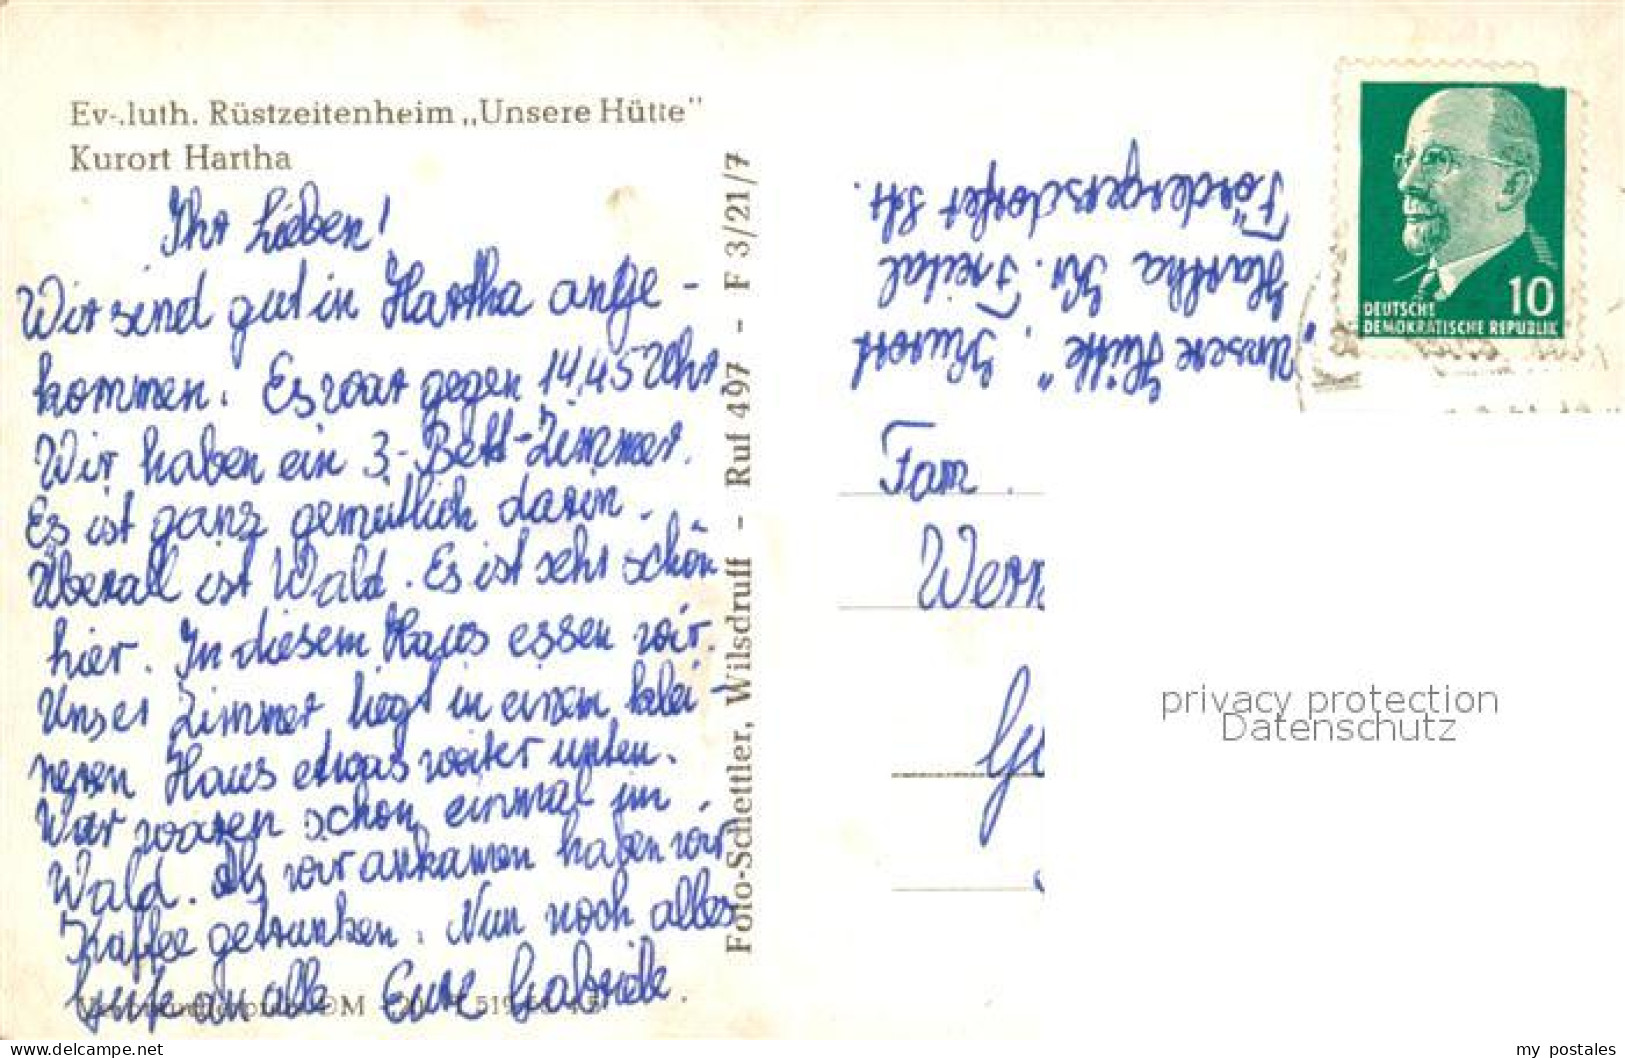 Ev-.luth. Rüstzeitenheim „Unsere Hütte"
Kurort Hartha
Ihr Lieben!
Wir sind gut in Hartha ange-
kommen. Es war gegen 14,45 Uhr
Wir haben ein 3-Bett-Zimmer.
Es ist ganz gemütlich darin.
Überall ist Wald. Es ist sehr schön
hier. In diesem Haus essen wir.
Unser Zimmer liegt in einem klei-
neren Haus etwas weiter unten.
Wir waren schon einmal im
Wald. Als wir ankamen haben wir
Kaffee getrunken. Nun noch alles
Gute an alle Eure Gabriele.
Foto-Schettler, Wilsdruff - Ruf 497 - F 3/21/7
"Unsere Hütte", Kurort
Hartha Kr. Freital
Fördergersdorfer Str.
DEUTSCHE
DEMOKRATISCHE REPUBLIK
10
Fam.
Wern
privacy protection
Datenschutz
the-collection-online.com
my postales